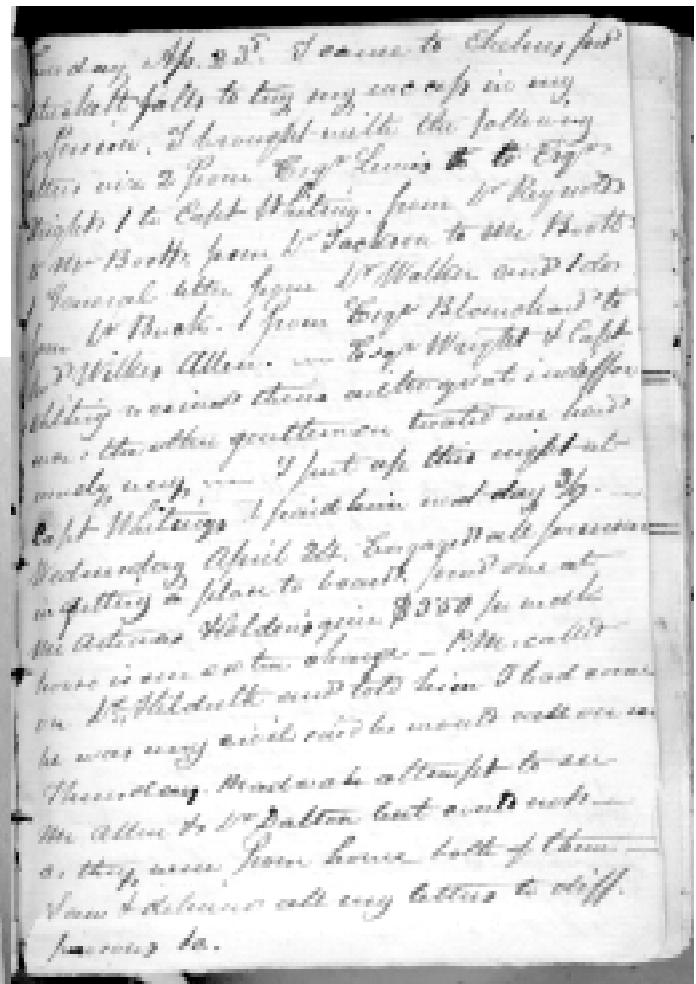 day Ap. 23d. I came to Chelmsford
falls to try my success in my
profession. I brought with the following
letters viz 2 from Esqr Lewis to Esqr
Wright 1 to Capt Whiting. from Dr Reynolds
to Mr Booth from Dr Jackson to Mr Booth
1 General letter from Dr Walker and 1 do
from Dr Buck. 1 from Esqr Blanchard to
Wilkes Allen. — Esqr Wright & Capt
Whiting received theirs with great indiffer
the other gentlemen treated me
I put up this night at
Capt Whitings I paid him next day 3/9. —
Wednesday April 24. Engaged all forenoon
in getting a place to board, found one at
Mr Artemas Holden's give $3.50 per week
horse is an extra charge — P.M. called
on Dr Hildreth and told him I had come
he was very civil said he would call on me
Thursday. Made an attempt to see
Mr Allen & Dr Dalton but could not —
as they were from home both of them —
Saw & deliver all my letters to diff.
persons to.